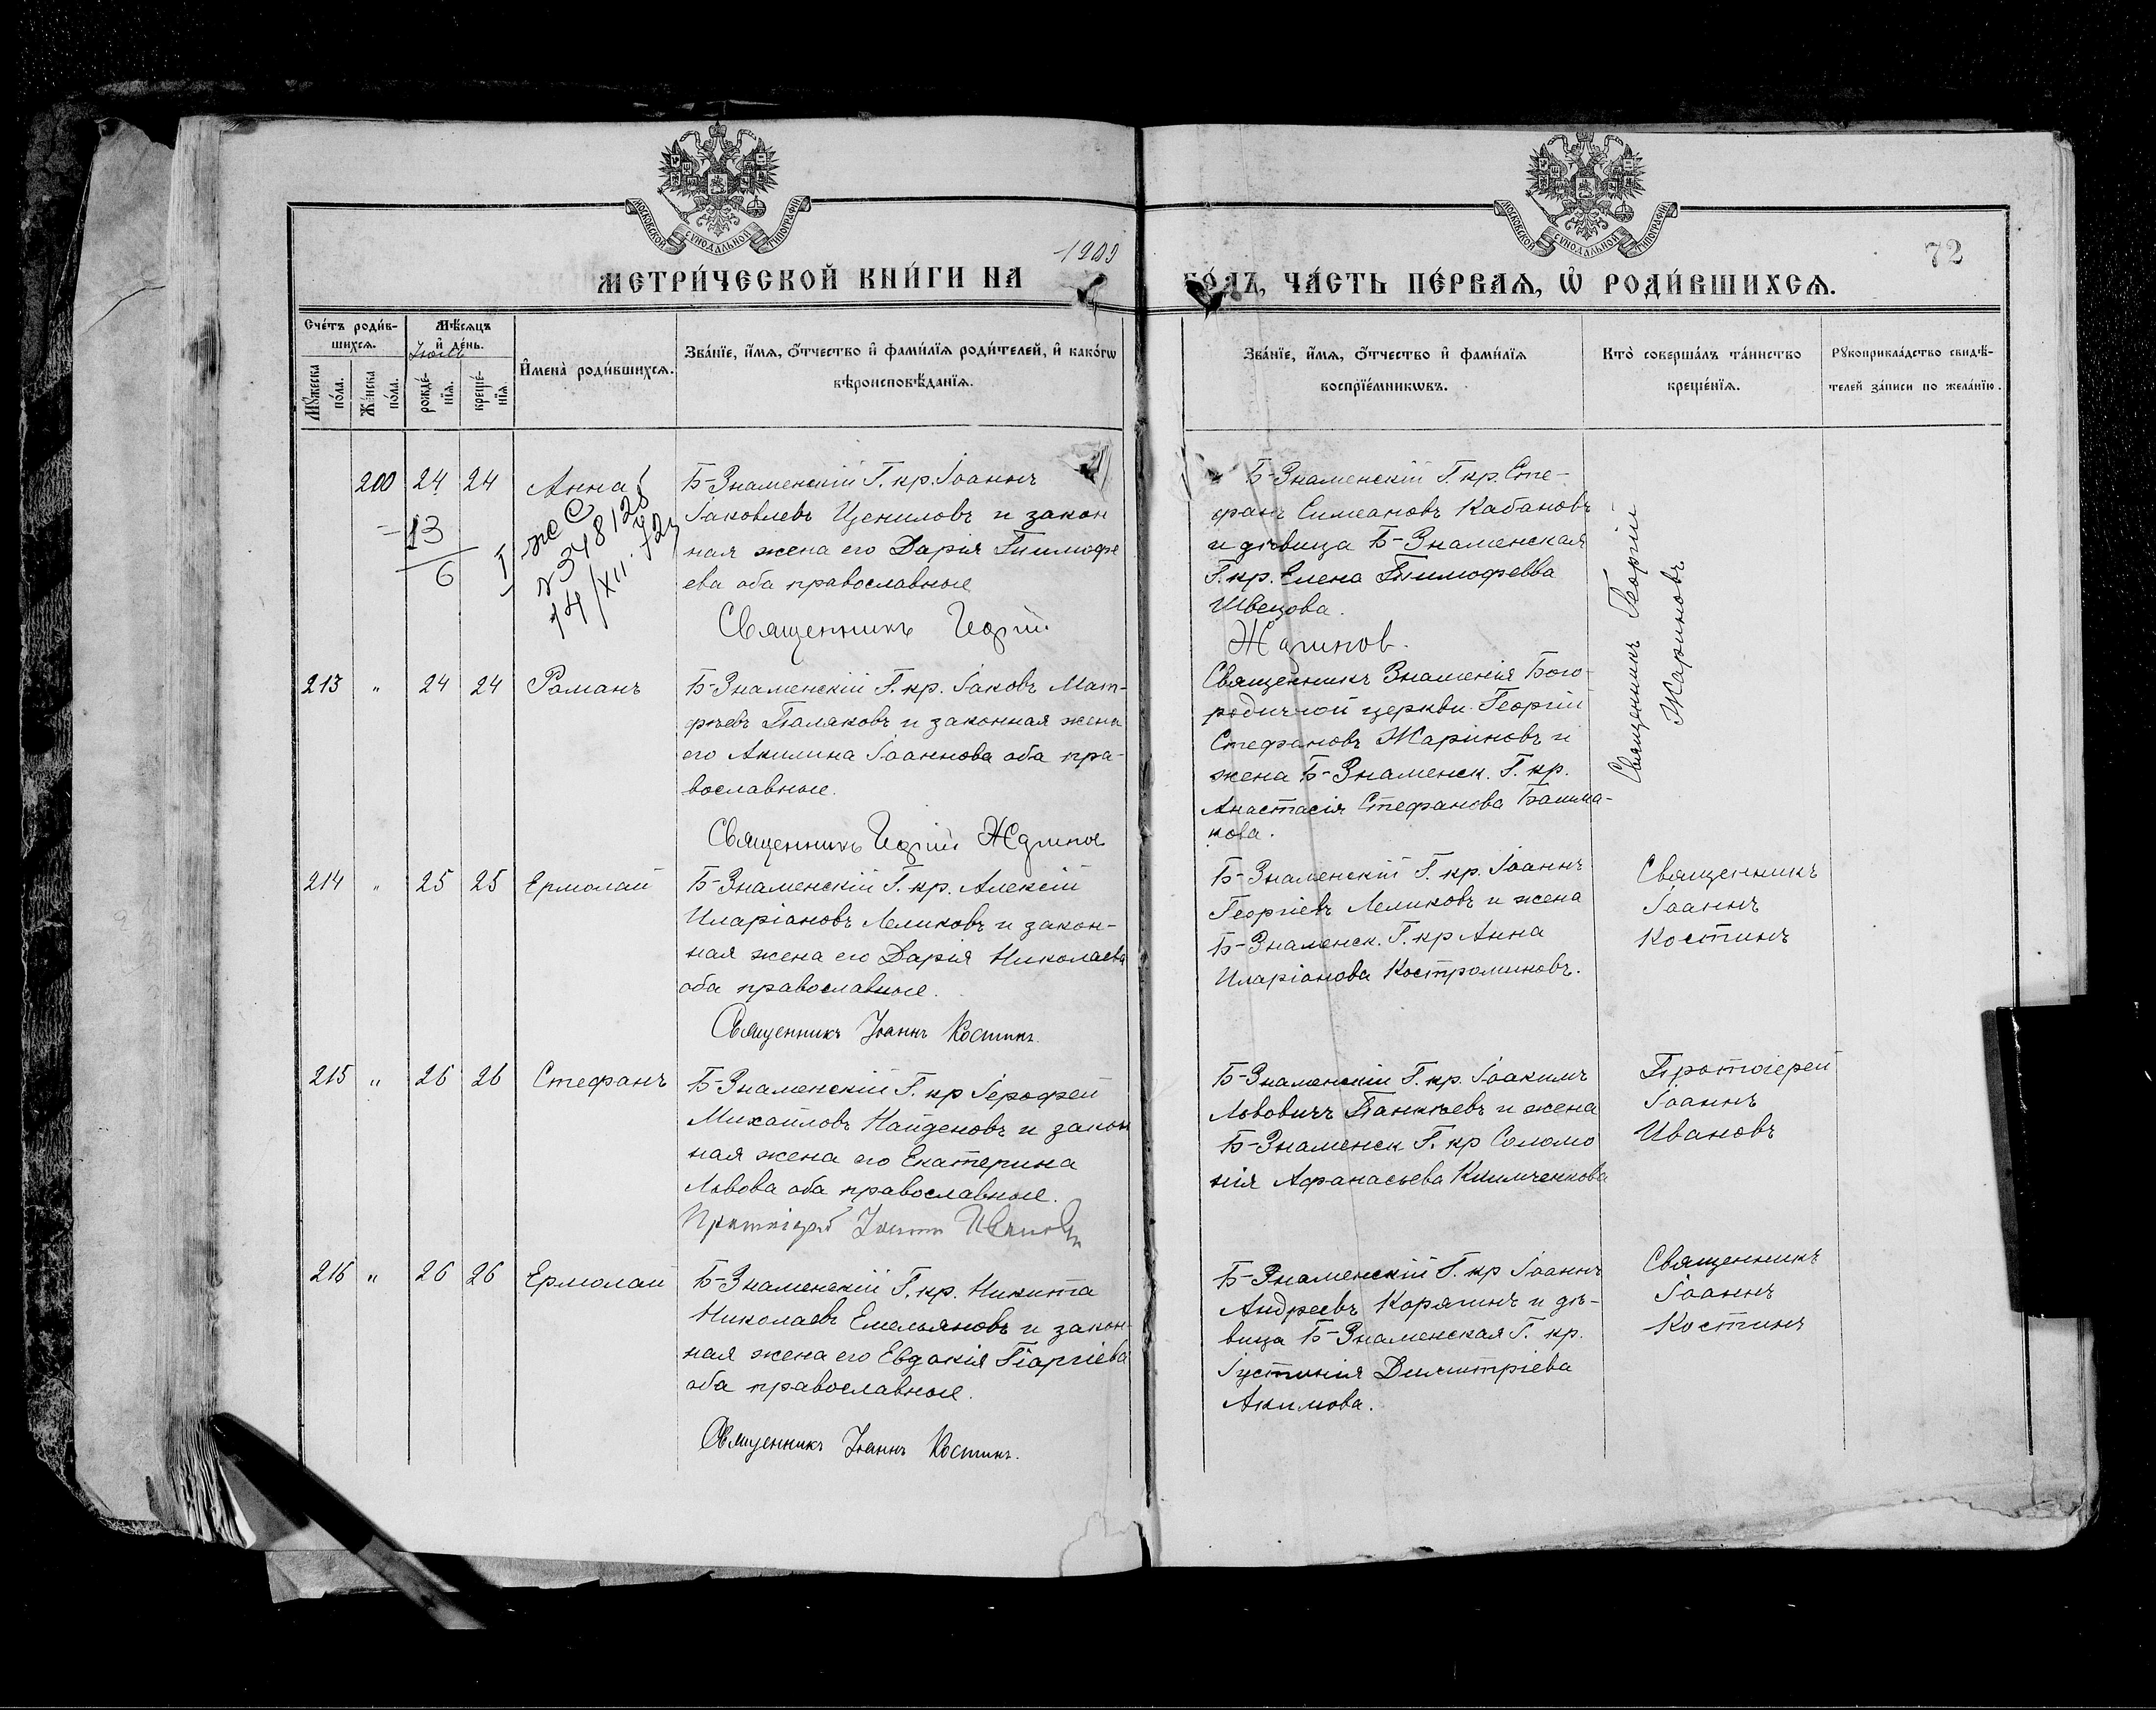 МОСКОВСКОЙ СѴНОДАЛЬНОЙ ТИПОГРАФІИ
МОСКОВСКОЙ СѴНОДАЛЬНОЙ ТИПОГРАФІИ
72
1909
МЕТРИ́ЧЕСКОЙ КНИ́ГИ НА
ГО́ДЪ, ЧА́СТЬ ПЕ́РВАѦ, Ѡ҆ РОДИ́ВШИХСѦ.
Сче́тъ роди́в-
шихсѧ.
Мѣ́сѧцъ
и҆ де́нь.
Іюль
Мꙋ́жеска
по́ла.
Же́нска
по́ла.
рожде́-
нїѧ.
креще́-
нїѧ.
И҆мена̀ роди́вшихсѧ.
Зва́нїе, и҆́мѧ, ѻ҆́тчество и҆ фами́лїѧ роди́телей, и҆ како́гѡ
вѣроисповѣ́данїѧ.
Зва́нїе, и҆́мѧ, ѻ҆́тчество и҆ фами́лїѧ
воспрїе́мникѡвъ.
Кто̀ соверша́лъ та́инство
креще́нїѧ.
Рꙋкоприкла́дство свидѣ́-
телей за́писи по жела́нїю.
200 24 24 Анна
13
6
Б-Знаменскій Г. кр. Іоаннъ
Іаковлевъ Цениловъ и закон
ная жена его Дарія Тимофе
ева оба православные
Священникъ Георгій
Жаринов.
Б-Знаменскій Г. кр. Сте-
фанъ Симеановъ Кабановъ
и дѣвица Б-Знаменская
Г. кр. Елена Тимофеева
Швецова.
Священникъ Георгій
Жариновъ
213 " 24 24 Романъ
Б-Знаменскій Г. кр. Іаковъ Мат-
фѣевъ Паляковъ и законная жена
его Акилина Іоаннова оба пра-
вославные.
Священникъ Георгій Жаринов
Священникъ Знаменія Бого-
родичной церкви Георгій
Стефановъ Жариновъ и
жена Б-Знаменск. Г. кр.
Анастасія Стефанова Башма-
кова.
214 " 25 25 Ермолай
Б-Знаменскій Г. кр. Алексій
Иларіановъ Леликовъ и закон-
ная жена его Дарія Николаева
оба православные.
Священникъ Іоаннъ Костинъ.
Б-Знаменскій Г. кр. Іоаннъ
Георгіевъ Леликовъ и жена
Б-Знаменск. Г. кр Анна
Иларіонова Костроминовъ.
Священникъ
Іоаннъ
Костинъ
215 " 26 26 Стефанъ
Б-Знаменскій Г. кр Іерофей
Михайловъ Найденовъ и закон
ная жена его Екатерина
Львова оба православные.
Протоіерей Іоаннъ Ивановъ
Б-Знаменскій Г. кр. Іоакимъ
Львовичъ Панкѣевъ и жена
Б-Знаменск Г. кр Соломо
нія Афанасьева Климченкова
Протоіерей
Іоаннъ
Ивановъ
216 " 26 26 Ермолай
Б-Знаменскій Г. кр. Никита
Николаевъ Емельяновъ и закон-
ная жена его Евдокія Георгіева
оба православные.
Священникъ Іоаннъ Костинъ.
Б-Знаменскій Г. кр Іоаннъ
Андреевъ Корягинъ и дѣ-
вица Б-Знаменская Г. кр.
Іустинія Димитріева
Акимова.
Священникъ
Іоаннъ
Костинъ